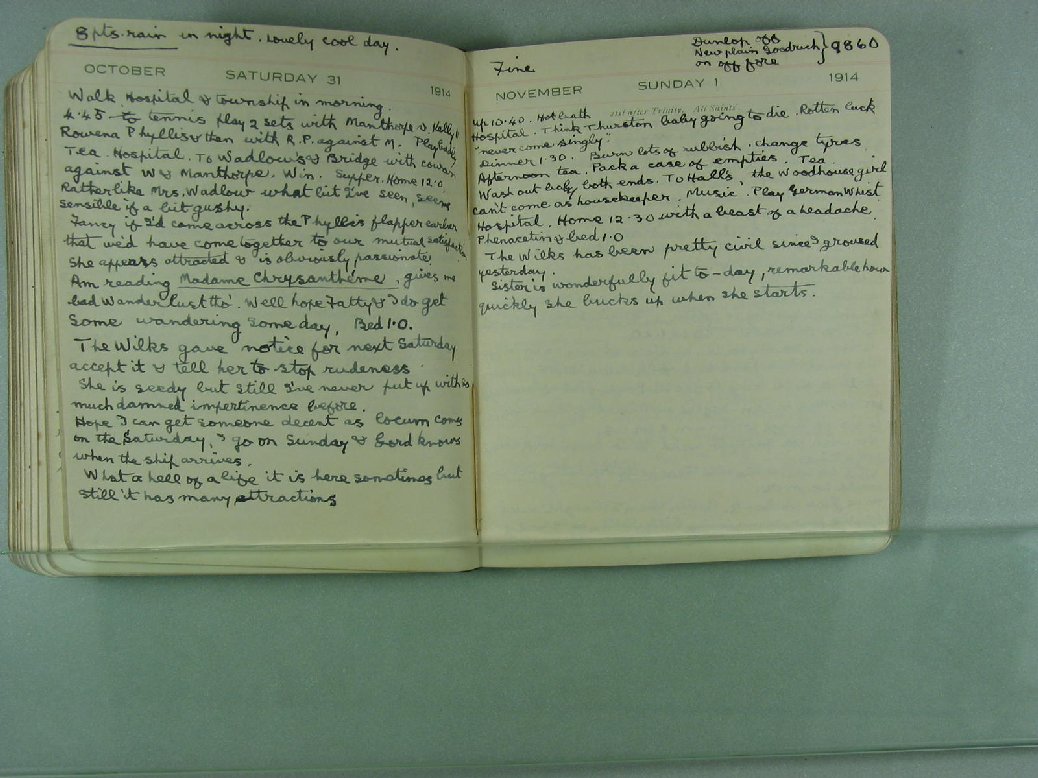 8 pts. rain in night. Lovely cool day.
OCTOBER SATURDAY 31 1914
Walk Hospital & township in morning.
4.45 to tennis play 2 sets with Manthorpe v. Kelly &
Rowena Phyllis & then with R.P. against M. Play
Tea. Hospital. To Wadlow's & Bridge with
against W & Manthorpe. Win. Supper. Home 12.0
Rather like Mrs. Wadlow what bit I've seen, seems
sensible if a bit gushy.
Fancy if I'd come across the Phyllis flapper earlier
that we'd have come together to our mutual satisfaction
She appears attracted & is obviously passionate
Am reading Madame Chrysanthème, gives me
bad Wanderlust tto. Well hope Fatty & I do get
some wandering some day. Bed 1.0.
The Wilks gave notice for next Saturday
accept it & tell her to stop rudeness
She is seedy but still I've never put up with as
much damned impertinence before.
Hope I can get someone decent as locum comes
on the Saturday, I go on Sunday & Lord knows
when the ship arrives.
What a hell of a life it is here sometimes but
still it has many attractions
Fine
Dunlop off
New plain Goodrich
on off fore
} 9860
NOVEMBER SUNDAY 1 1914
21st after Trinity. All Saints
Up 10.40. Hot bath
Hospital. Think Thurston baby going to die. Rotten luck
"never come singly"
Dinner 1.30. Burn lots of rubbish, change tyres
Afternoon tea. Pack a case of empties. Tea.
Wash out baby both ends. To Halls', the Woodhouse girl
can't come as housekeeper. Music. Play German Whist
Hospital. Home 12.30 with a beast of a headache.
Phenacetin & bed 1.0
The Wilks has been pretty civil since I groused
yesterday.
Sister is wonderfully fit to-day, remarkable how
quickly she bucks up when she starts.